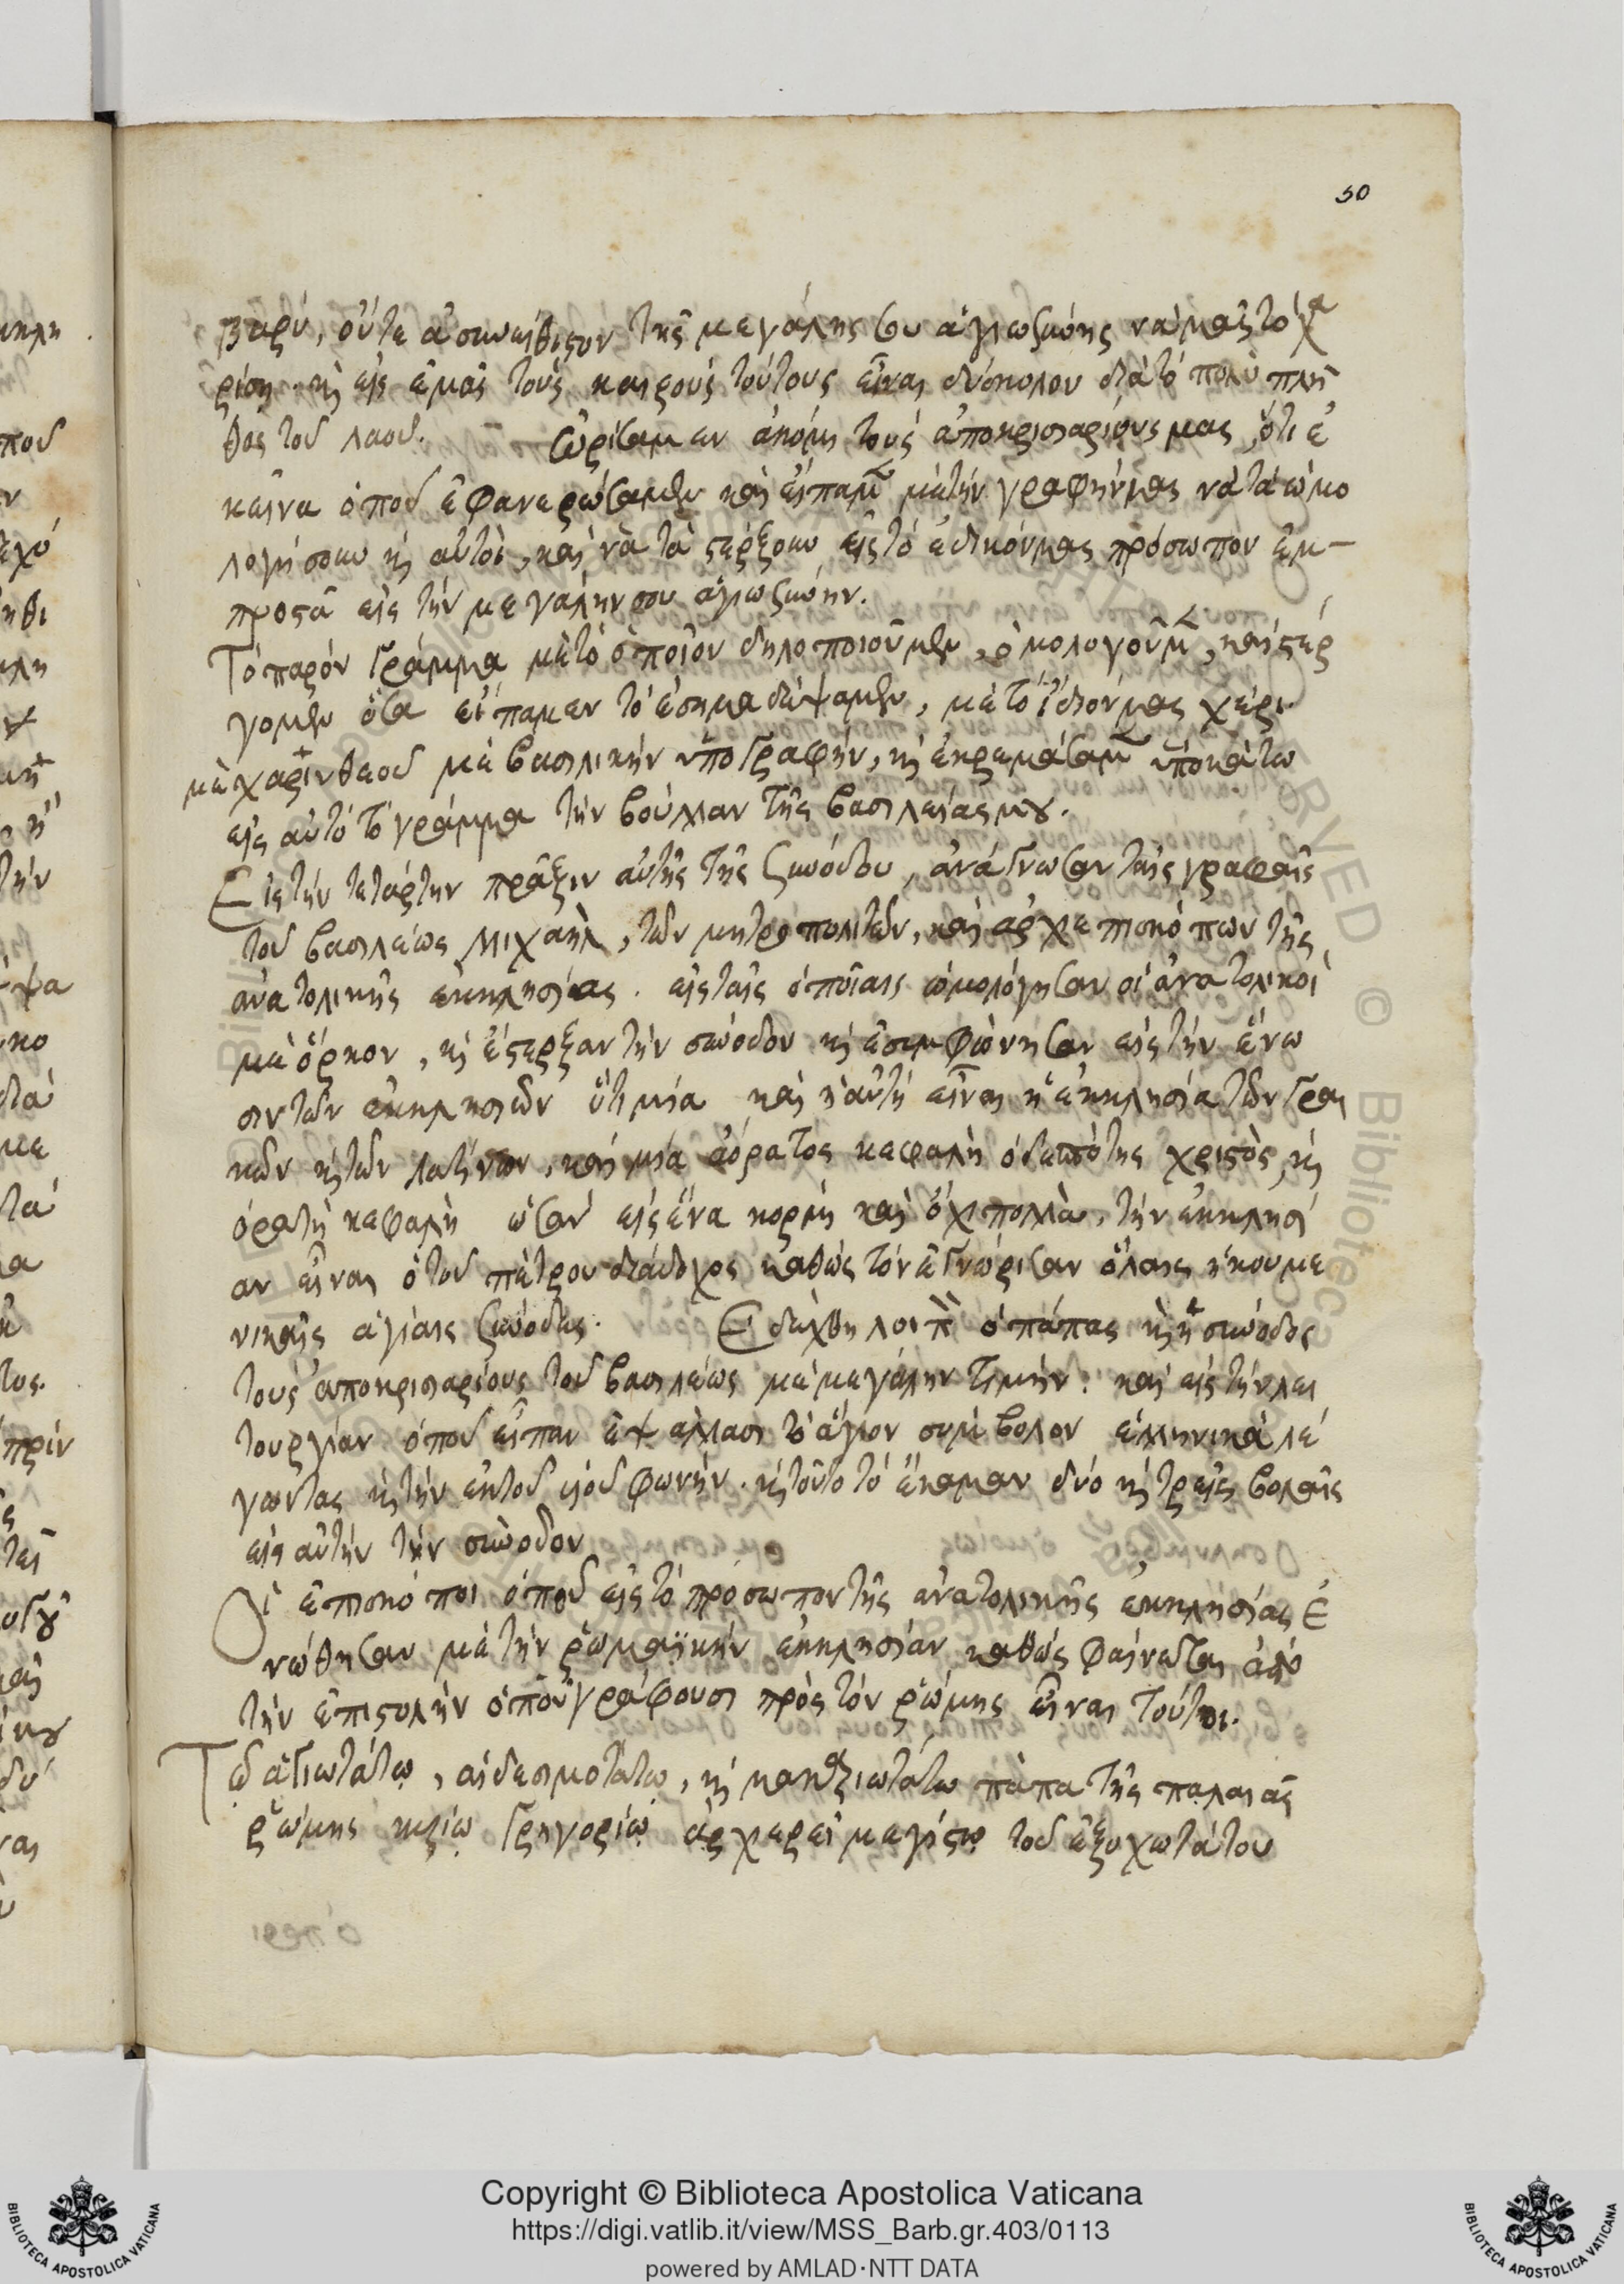 50
βαρύ, οὔτε ἀσυνείθιστον τῆς μεγάλης σου ἁγιωσύνης νὰ μᾶς τὸ χα
ρίσῃ. κὴ εἰς ἐμᾶς τοὺς καιροὺς τούτους εἶναι δύσκολον διὰ τὸ πολὺ πλῆ
θος τοῦ λαοῦ. ὡρίσαμεν ἀκόμη τοὺς ἀποκρισαρίους μας, ὅτι ἐ
κεῖνα ὁποῦ ἐφανερώσαμεν καὶ εἴπαμεν μὲ τὴν γραφήν μας νὰ τὰ ὡμο
λογήσουν κὴ αὐτοὶ, καὶ νὰ τὰ στέρξουν εἰς τὸ ἐδικόν μας πρόσωπον ἐμ-
προστὰ εἰς τὴν μεγάλην σου ἁγιωσύνην.
Τὸ παρὸν γράμμα μὲ τὸ ὁποῖον δηλοποιοῦμεν, ὁμολογοῦμεν, καὶ στέρ
γομεν ὅσα εἴπαμεν τὸ ἐσημαδέψαμεν, μὲ τὸ ἴδιόν μας χέρι
μὲ χάριν θεοῦ μὲ βασιλικὴν ὑπογραφήν, κὴ ἐκρεμάσαμεν ὑποκάτω
εἰς αὐτὸ τὸ γράμμα τὴν βούλλαν τῆς βασιλείας μου.
Εἰς τὴν τετάρτην πρᾶξιν αὐτῆς τῆς συνόδου, ἀνάγνωσαν ταῖς γραφαῖς
τοῦ βασιλέως Μιχαὴλ, τῶν μητροπολιτῶν, καὶ ἀρχιεπισκόπων τῆς
ἀνατολικῆς ἐκκλησίας. εἰς ταῖς ὁποῖαις ὡμολόγησαν οἱ ἀνατολικοὶ
μὲ ὅρκον, κὴ ἔστερξαν τὴν σύνοδον κὴ ἐσυμφώνησαν εἰς τὴν ἕνω
σιν τῶν ἐκκλησιῶν ὅτι μία καὶ ἡ αὐτὴ εἶναι ἡ ἐκκλησία τῶν Γραι
κῶν κὴ τῶν λατίνων, καὶ μία ἀόρατος κεφαλὴ ὁ δεσπότης χριστὸς, κὴ
ὁρατὴ κεφαλὴ ὡσὰν εἰς ἕνα κορμὴ καὶ ὄχι πολλὰ, τὴν ἐκκλησί
αν εἶναι ὁ τοῦ πέτρου διάδοχος καθὼς τὸν ἐγνώρισαν ὅλαις ἡ κουμε
νικαῖς ἁγίαις σύνοδες. Ἐδέχθη λοιπὸν ὁ πάπας κὴ ἡ σύνοδος
τοὺς ἀποκρισαρίους τοῦ βασιλέως μὲ μεγάλην τιμήν: καὶ εἰς τὴν λει
τουργίαν ὁποῦ εἶπαν ἐψάλλασι τὸ ἅγιον σύμβολον ἑλληνικὰ λέ
γωντας κὴ τὴν ἐκ τοῦ υἱοῦ φωνήν. κὴ τοῦτο τὸ ἔκαμαν δύο κὴ τρεῖς βολαῖς
εἰς αὐτὴν τὴν σύνοδον
Οἱ ἐπισκόποι ὁποῦ εἰς τὸ πρόσωπον τῆς ἀνατολικῆς ἐκκλησίας ἑ
νώθησαν μὲ τὴν ῥωμαϊκὴν ἐκκλησίαν καθὼς φαίνεται ἀπὸ
τὴν ἐπιστολὴν ὁποῦ γράφουσι πρὸς τὸν ῥώμης εἶναι τούτοι.
Τῷ ἁγιωτάτῳ, αἰδεσιμοτάτῳ, κὴ μακαριωτάτῳ πάπα τῆς παλαιᾶς
ῥώμης κυρίῳ Γρηγορίῳ ἀρχιερεῖ μεγίστῳ τοῦ ἐξοχωτάτου
Copyright © Biblioteca Apostolica Vaticana
https://digi.vatlib.it/view/MSS_Barb.gr.403/0113
powered by AMLAD·NTT DATA
BIBLIOTECA APOSTOLICA VATICANA
BIBLIOTECA APOSTOLICA VATICANA